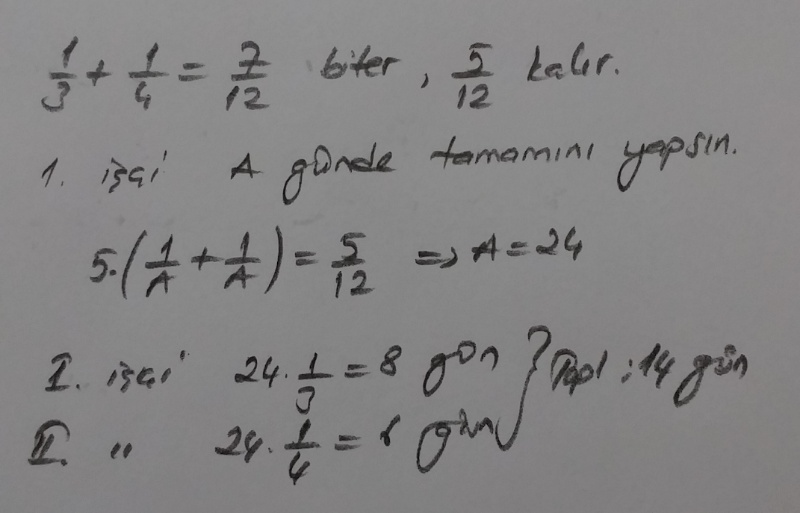 1/3 + 1/4 = 7/12 biter, 5/12 kalır.
1. işçi A günde tamamını yapsın.
5.(1/A + 1/A) = 5/12 => A = 24
I. işçi 24.1/3 = 8 gün } Topl : 14 gün
II. " 24.1/4 = 6 gün